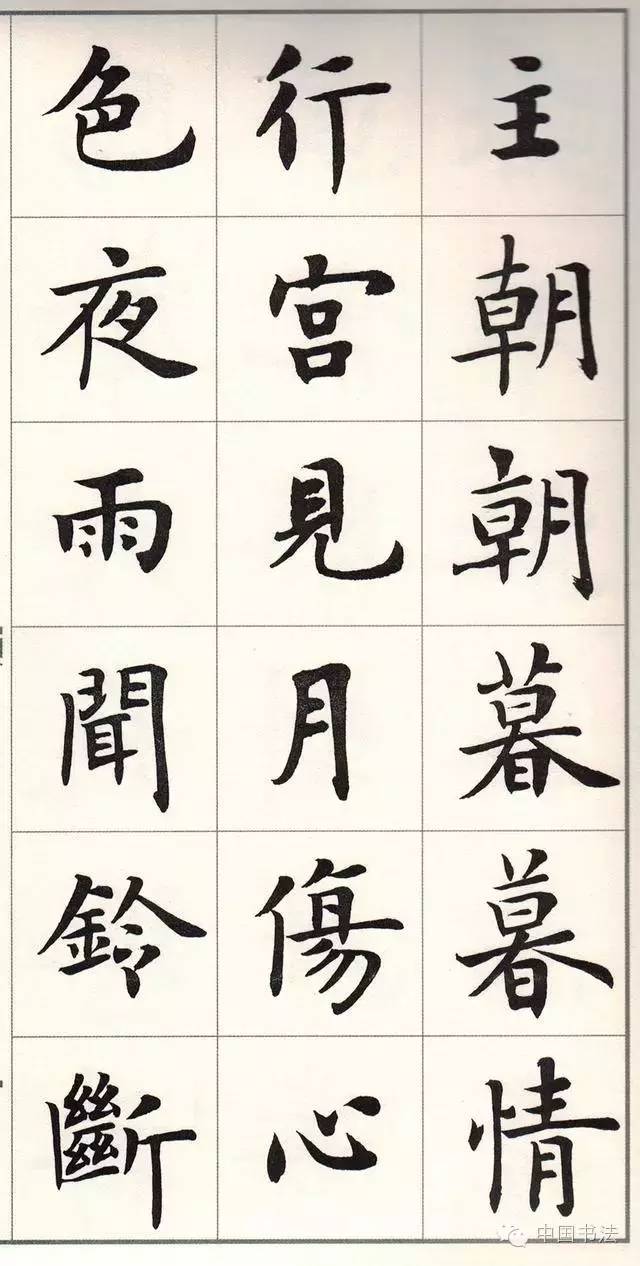 主朝朝暮暮情
行宫見月傷心
色夜雨聞鈴斷
中国书法